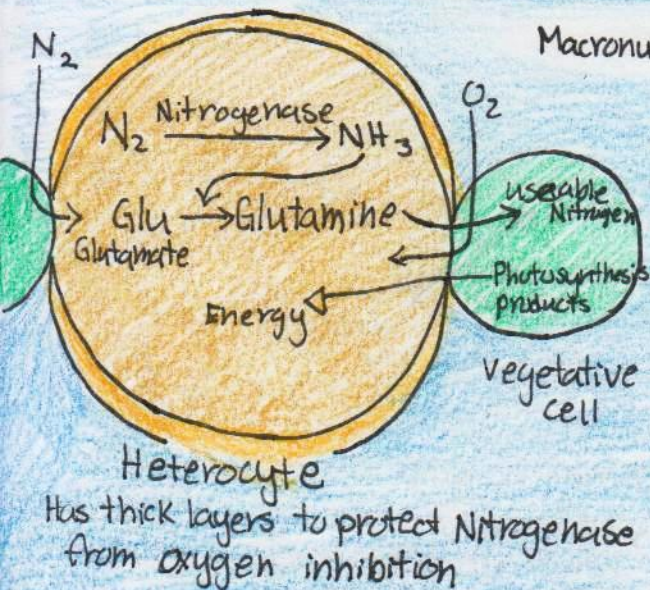 N₂
Macronu
O₂
Nitrogenase
N₂ NH₃
Glu Glutamine
Glutamate
Energy
useable
Nitrogen
Photosynthesis
products
Vegetative
cell
Heterocyte
Has thick layers to protect Nitrogenase
from oxygen inhibition